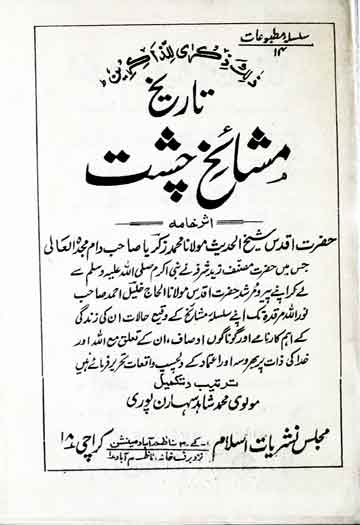 سلسلہ مطبوعات
۱۴
ذٰلِكَ ذِكْرٰى لِلذّٰكِرِيْنَ
تاریخ
مشائخِ چشت
اثر خامہ
حضرت اقدس شیخ الحدیث مولانا محمد زکریا صاحب دام مجدہ العالی
جس میں حضرت مصنف زید شرفہ نے نبی اکرم صلی اللہ علیہ وسلم سے
لے کر اپنے پیر و مرشد حضرت اقدس مولانا الحاج خلیل احمد صاحب
نور اللہ مرقدہ تک اپنے سلسلۂ مشائخ کے وقیع حالات ان کی زندگی
کے اہم کارنامے اور گوناگوں اوصاف، ان کے تعلق مع اللہ اور
خدا کی ذات پر بھروسہ اور اعتماد کے دلچسپ واقعات تحریر فرمائے ہیں
ترتیب و تکمیل
مولوی محمد شاہد سہارن پوری
مجلس نشریات اسلام ۱۔کے۔۳ ناظم آباد مینشن کراچی ۱۸
نزد برف خانہ، ناظم آباد